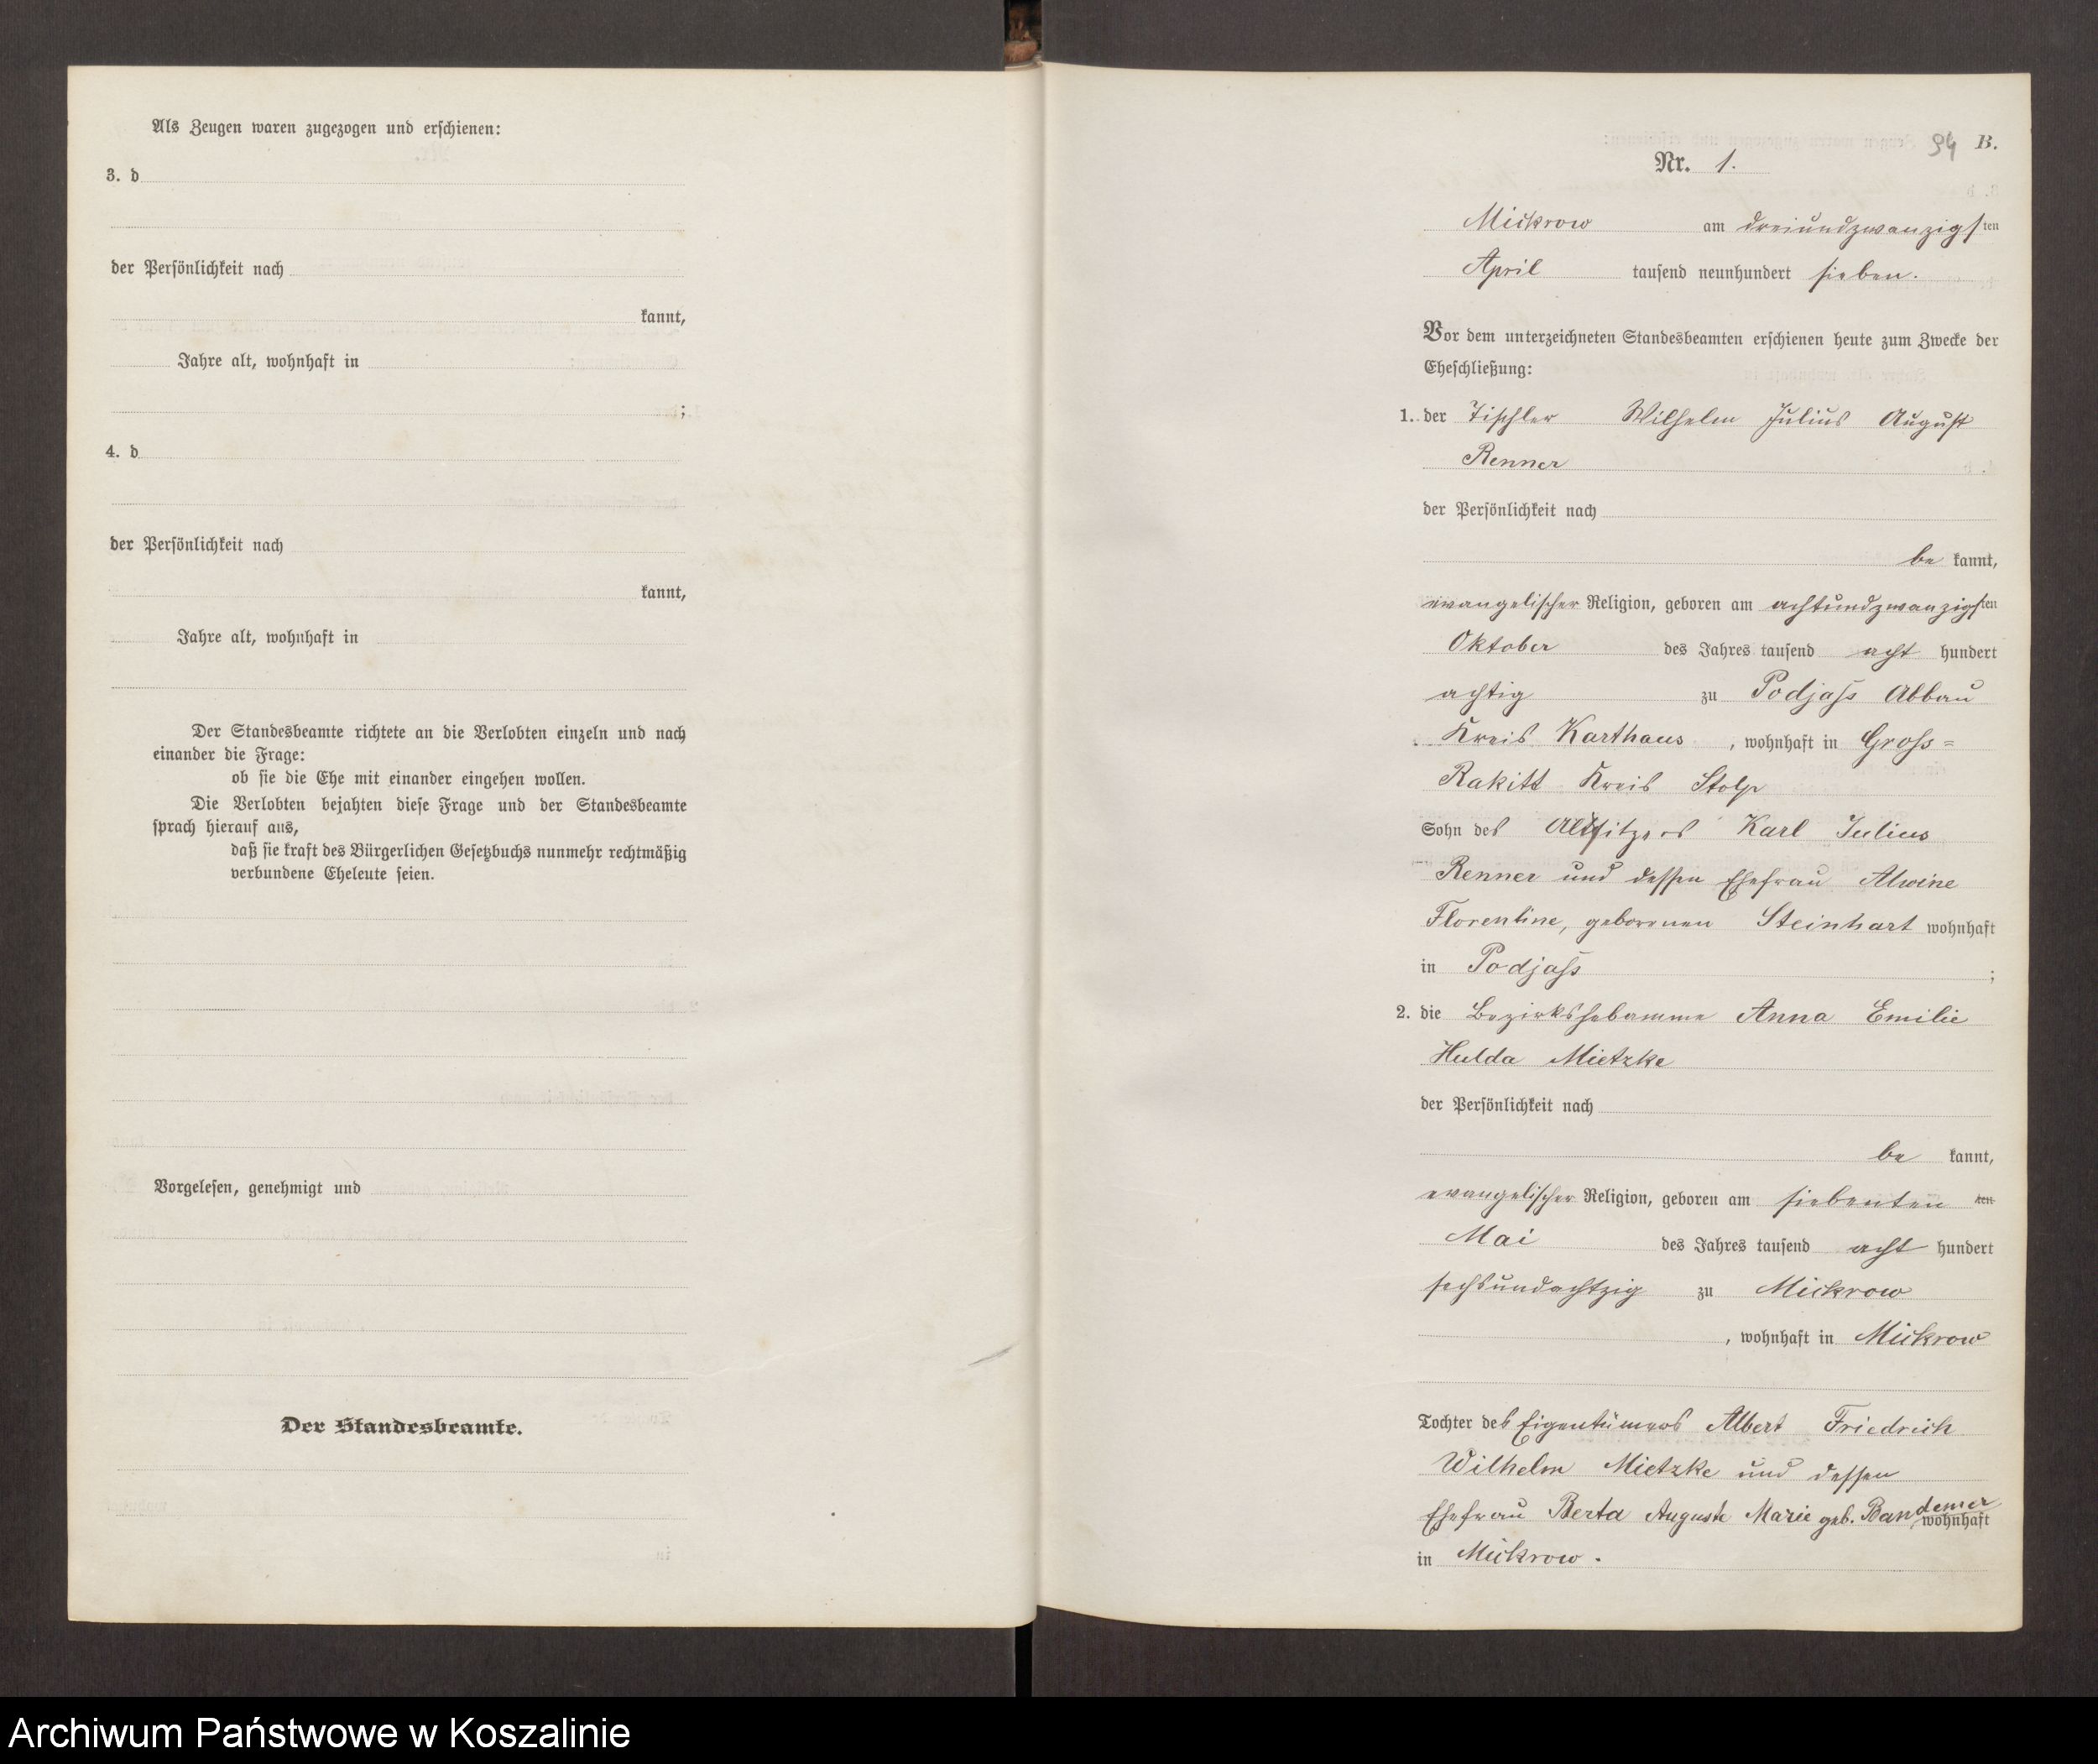 Als Zeugen waren zugezogen und erschienen:
3. d
der Persönlichkeit nach
kannt,
Jahre alt, wohnhaft in
;
4. d
der Persönlichkeit nach
kannt,
Jahre alt, wohnhaft in
Der Standesbeamte richtete an die Verlobten einzeln und nach
einander die Frage:
ob sie die Ehe mit einander eingehen wollen.
Die Verlobten bejahten diese Frage und der Standesbeamte
sprach hierauf aus,
daß sie kraft des Bürgerlichen Gesetzbuchs nunmehr rechtmäßig
verbundene Eheleute seien.
Vorgelesen, genehmigt und
Der Standesbeamte.
94 B.
Nr. 1.
Mickrow am dreiundzwanzigsten
April tausend neunhundert sieben.
Vor dem unterzeichneten Standesbeamten erschienen heute zum Zwecke der
Eheschließung:
1. der Tischler Wilhelm Julius August
Renner
der Persönlichkeit nach
be kannt,
evangelischer Religion, geboren am achtundzwanzigsten
Oktober des Jahres tausend acht hundert
achtig zu Podjaß Abbau
Kreis Karthaus, wohnhaft in Groß=
Rakitt Kreis Stolp
Sohn des Altsitzers Karl Julius
Renner und dessen Ehefrau Alwine
Florentine, geborenen Steinhart wohnhaft
in Podjaß ;
2. die Bezirkshebamme Anna Emilie
Hulda Mietzke
der Persönlichkeit nach
be kannt,
evangelischer Religion, geboren am siebenten ten
Mai des Jahres tausend acht hundert
sechsundachtzig zu Mickrow
, wohnhaft in Mickrow
Tochter des Eigentümers Albert Friedrich
Wilhelm Mietzke und dessen
Ehefrau Berta Auguste Marie geb. Bandemer wohnhaft
in Mickrow.
Archiwum Państwowe w Koszalinie